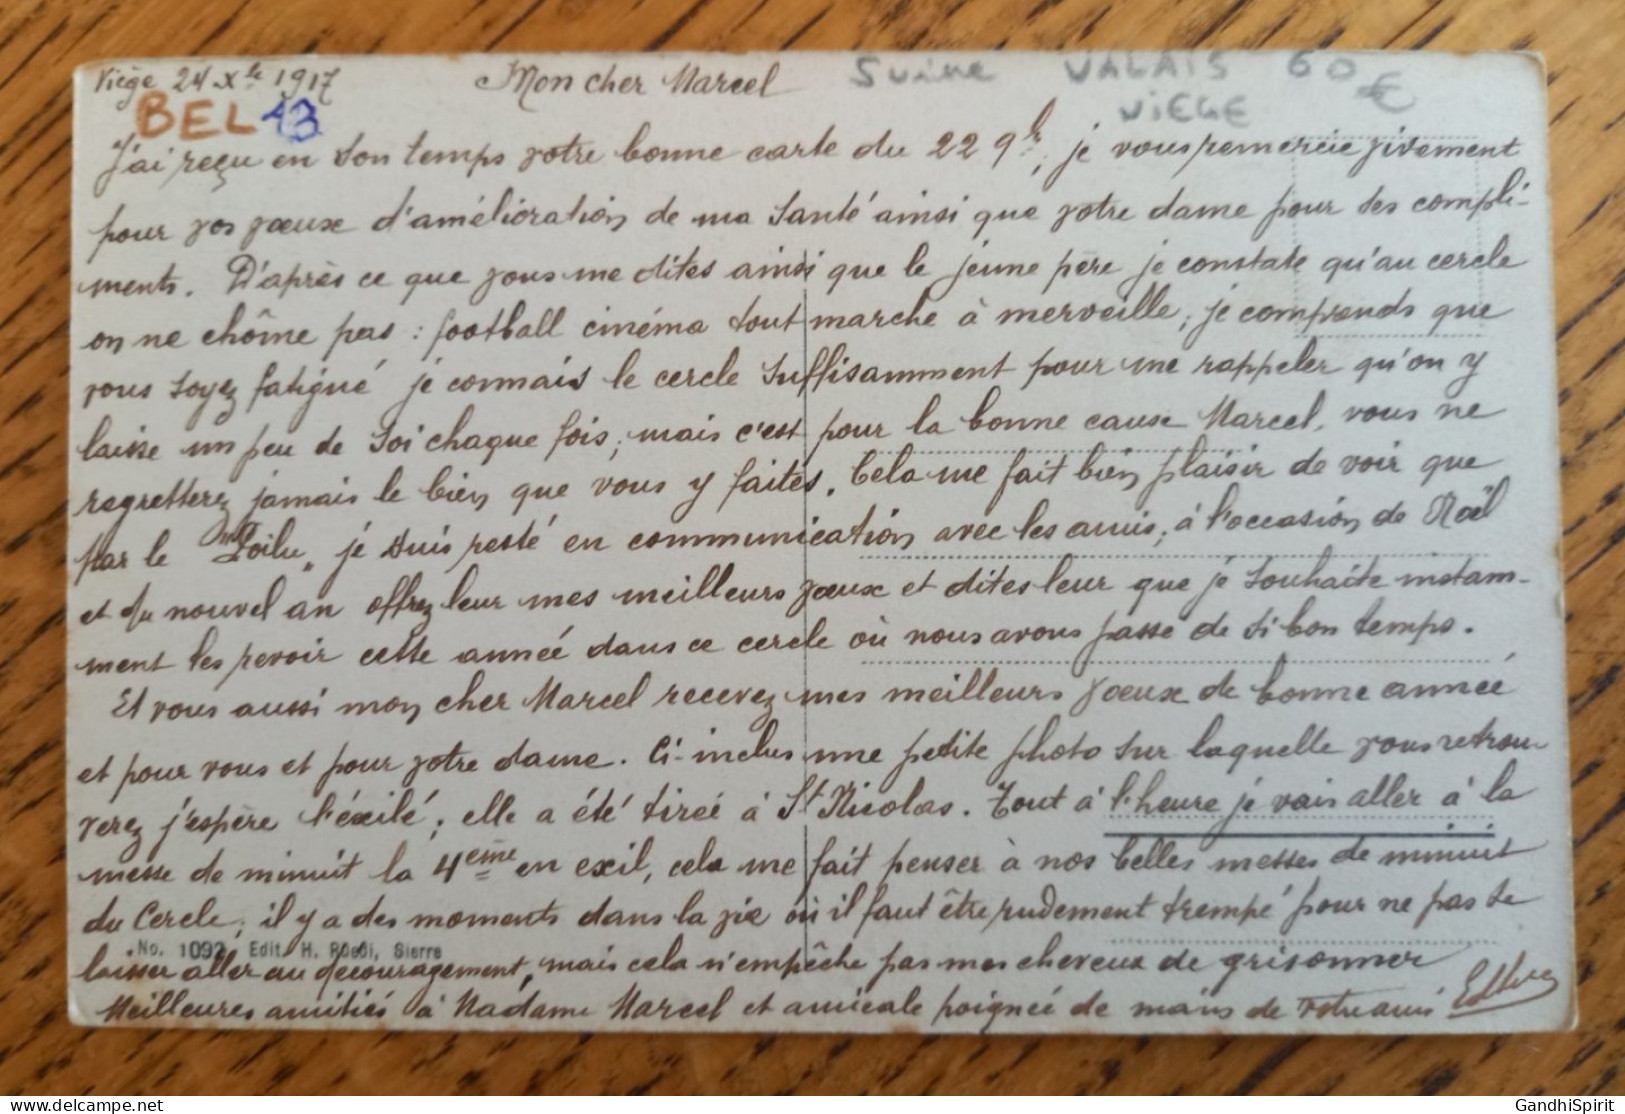 Viège 24 Xbre 1917 Mon cher Marcel
Suisse VALAIS 60 €
VIEGE
BEL 13
J'ai reçu en son temps votre bonne carte du 22 9bre, je vous remercie vivement
pour vos vœux d'amélioration de ma santé ainsi que votre dame pour ses compli-
ments. D'après ce que vous me dites ainsi que le jeune père je constate qu'au cercle
on ne chôme pas : football cinéma tout marche à merveille, je comprends que
vous soyez fatigué je connais le cercle suffisamment pour me rappeler qu'on y
laisse un peu de soi chaque fois, mais c'est pour la bonne cause Marcel, vous ne
regretterez jamais le bien que vous y faites. Cela me fait bien plaisir de voir que
par le "Poilu" je suis resté en communication avec les amis, à l'occasion de Noël
et du nouvel an offrez leur mes meilleurs vœux et dites leur que je souhaite instam-
ment les revoir cette année dans ce cercle où nous avons passé de si bon temps.
Et vous aussi mon cher Marcel recevez mes meilleurs vœux de bonne année
et pour vous et pour votre dame. Ci-inclus une petite photo sur laquelle vous retrou
verez j'espère l'éxilé, elle a été tirée à St Nicolas. Tout à l'heure je vais aller à la
messe de minuit la 4eme en exil, cela me fait penser à nos belles messes de minuit
du Cercle, il y a des moments dans la vie où il faut être rudement trempé pour ne pas se
No. 1092, Edit. H. Rüedi, Sierre
laisser aller au découragement, mais cela n'empêche pas mes cheveux de grisonner
Meilleures amitiés à Madame Marcel et amicale poignée de mains de votre ami
GandhiSpirit